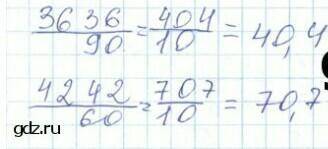 3636/90 = 404/10 = 40,4
4242/60 = 707/10 = 70,7
gdz.ru